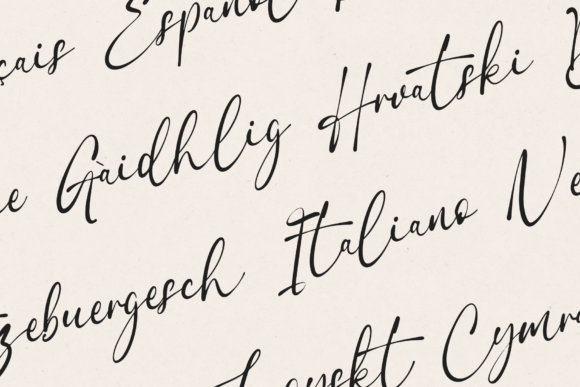 çais Español
e Gàidhlig Hrvatski B
zebuergesch Italiano Ne
Cymra